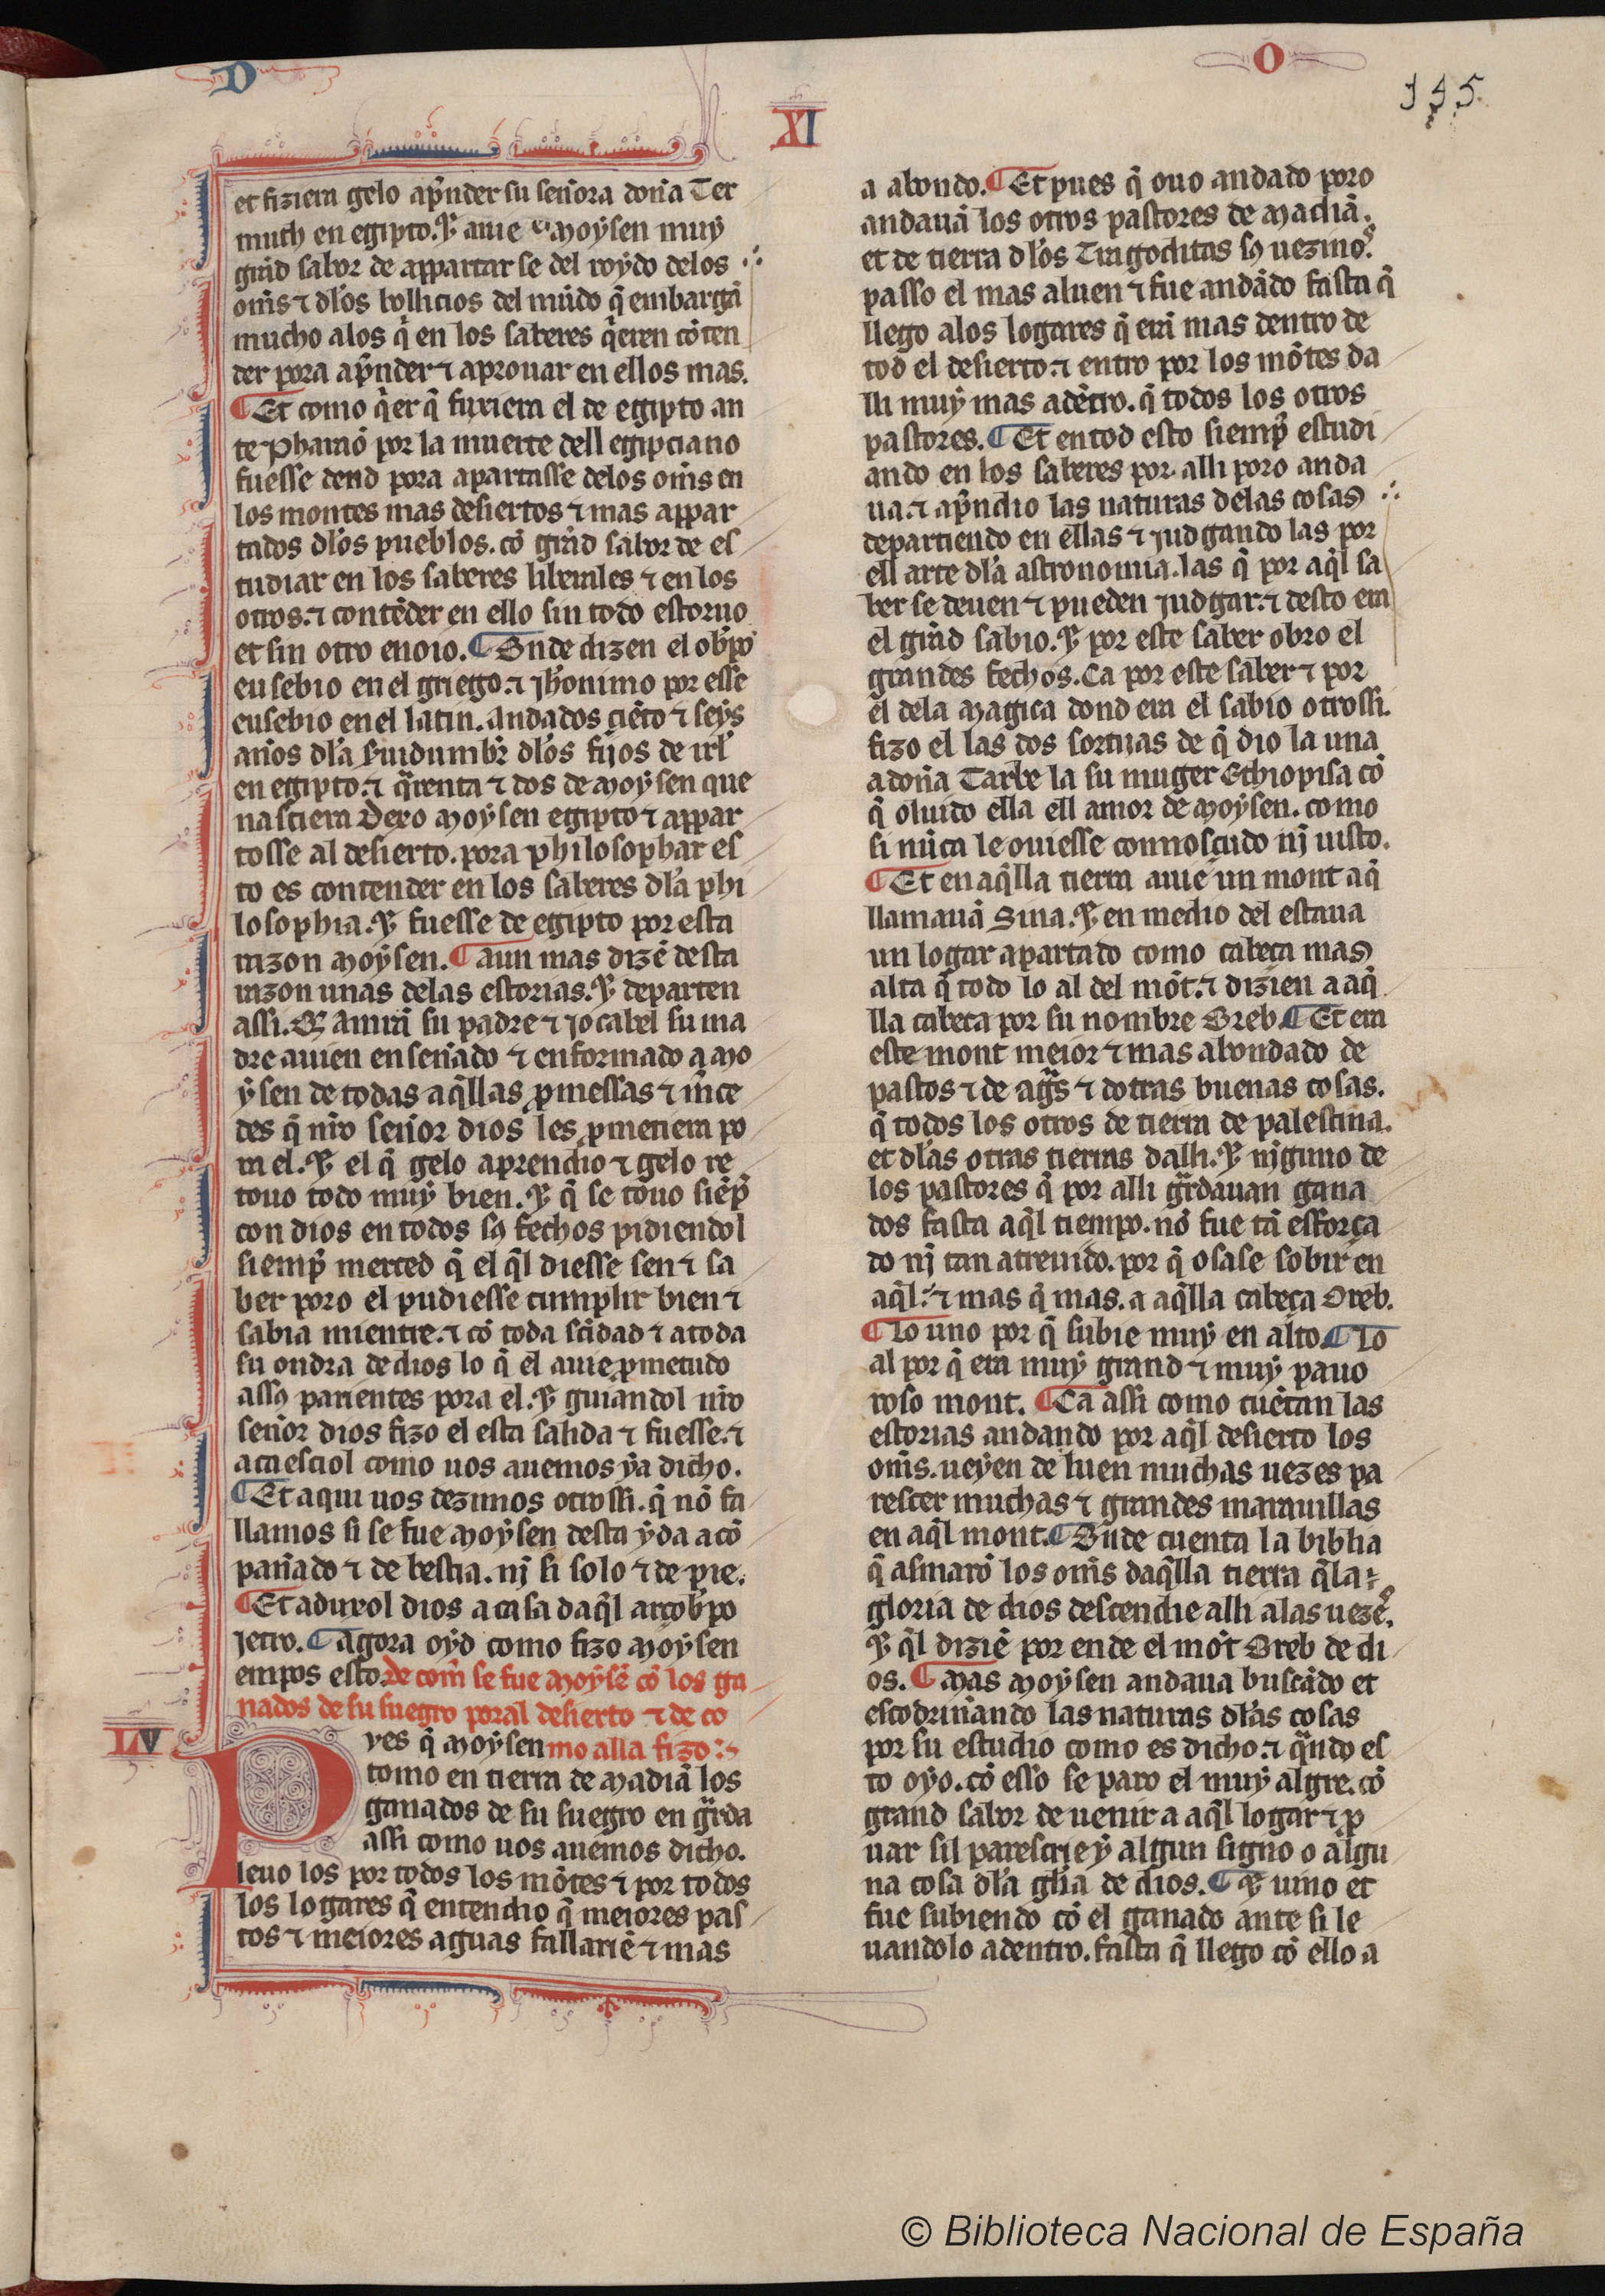 D
XI
O
145.
et fiziera gelo ap̃nder su sennora donna Ter
muth en egipto. Et auie moysen muy
grãd sabor de appartar se del roydo delos
om̃s ⁊ dlos bollicios del mũdo q̃ embargã
mucho alos q̃ en los saberes q̃eren cõten
der pora ap̃nder ⁊ aprouar en ellos mas.
¶Et como q̃er q̃ fuxiera el de egipto an
te Pharaõ por la muerte dell egipciano
fuesse dend pora apartasse delos om̃s en
los montes mas desiertos ⁊ mas appar
tados dlos pueblos. cõ grãd sabor de es
tudiar en los saberes liberales ⁊ en los
otros. ⁊ contẽder en ello sin todo estoruo
et sin otro enoio. ¶Onde dizen el ob̃po
eusebio en el griego. ⁊ jh̃onimo por esse
eusebio en el latin. Andados ciẽto ⁊ seys
annos dla s̃uidumbr̃ dlos fijos de irl̃
en egipto. ⁊ q̃renta ⁊ dos de moysen que
nasciera Dexo moysen egipto ⁊ appar
tosse al desierto. pora philosophar es
to es contender en los saberes dla phi
losophia. Et fuesse de egipto por esta
razon moysen. ¶aun mas dizẽ desta
razon unas delas estorias. Et departen
assi. Q̃ Amrã su padre ⁊ jocabel su ma
dre auien ensennado ⁊ enformado a mo
ysen de todas aq̃llas p̃messas ⁊ m̃ce
des q̃ nr̃o sennor dios les p̃metiera po
ra el. Et el q̃ gelo aprendio ⁊ gelo re
touo todo muy bien. Et q̃ se touo siẽp̃
con dios en todos sꝯ fechos pidiendol
siemp̃ merced q̃ el q̃l diesse sen ⁊ sa
ber poro el pudiesse cumplir bien ⁊
sabia mientre. ⁊ cõ toda sc̃idad ⁊ a toda
su ondra de dios lo q̃ el auie p̃metudo
assꝯ parientes pora el. Et guiandol nr̃o
sennor dios fizo el esta salida ⁊ fuesse. ⁊
acaesciol como uos auemos ya dicho.
¶Et aqui uos dezimos otrossi. q̃ nõ fa
llamos si se fue moysen desta yda acõ
pannado ⁊ de bestia. nj si solo ⁊ de pie.
¶Et aduxol dios a casa daq̃l arçob̃po
jetro. ¶agora oyd como fizo moysen
empos esto. de com̃ se fue moysẽ cõ los ga
nados de su suegro poral desierto ⁊ de co
LV
Pves q̃ moysen mo alla fizo :~
tomo en tierra de madiã los
ganados de su suegro en gr̃da
assi como uos auemos dicho.
leuo los por todos los mõtes ⁊ por todos
los logares q̃ entendio q̃ meiores pas
tos ⁊ meiores aguas fallariẽ ⁊ mas
a abondo. ¶Et pues q̃ ouo andado poro
andauã los otros pastores de madiã.
et de tierra dlos Tragoditas sꝯ uezinos.
passo el mas aluen ⁊ fue andãdo fasta q̃
llego alos logares q̃ erã mas dentro de
tod el desierto. ⁊ entro por los mõtes da
lli muy mas adẽtro. q̃ todos los otros
pastores. ¶Et en tod esto siemp̃ estudi
ando en los saberes por alli poro anda
ua. ⁊ ap̃ndio las naturas delas cosas
departiendo en ellas ⁊ judgando las por
ell arte dla astronomia. las q̃ por aq̃l sa
ber se deuen ⁊ pueden judgar. ⁊ desto era
el grãd sabio. Et por este saber obro el
grandes fechos. Ca por este saber ⁊ por
el dela magica dond era el sabio otrossi.
fizo el las dos sortijas de q̃ dio la una
a donna Tarbe la su muger Ethiopisa cõ
q̃ oluido ella ell amor de moysen. como
si nũca le ouiesse connosçudo nj uisto.
¶Et en aq̃lla tierra auie un mont aq̃
llamauã Sina. Et en medio del estaua
un logar apartado como cabeça mas
alta q̃ todo lo al del mõt. ⁊ dizien a aq̃
lla cabeça por su nombre Oreb. ¶Et era
este mont meior ⁊ mas abondado de
pastos ⁊ de agũs ⁊ dotras buenas cosas.
q̃ todos los otros de tierra de palestina.
et dlas otras tierras dalli. Et njguno de
los pastores q̃ por alli gr̃dauan gana
dos fasta aq̃l tiempo. nõ fue tã esforça
do nj tan atreuido. por q̃ osase sobir en
aq̃l. ⁊ mas q̃ mas. a aq̃lla cabeça Oreb.
¶Lo uno por q̃ subie muy en alto. ¶Lo
al por q̃ era muy grand ⁊ muy pauo
roso mont. ¶Ca assi como cuẽtan las
estorias andando por aq̃l desierto los
om̃s. ueyen de luen muchas uezes pa
rescer muchas ⁊ grandes marauillas
en aq̃l mont. ¶Onde cuenta la biblia
q̃ asmarõ los om̃s daq̃lla tierra q̃ la
gloria de dios descendie alli alas uezes.
Et q̃l diziẽ por ende el mõt Oreb de di
os. ¶mas moysen andaua buscãdo et
escodrinnando las naturas dlas cosas
por su estudio como es dicho. ⁊ q̃ndo es
to oyo. cõ esso se paro el muy algre. cõ
grand sabor de uenir a aq̃l logar ⁊ p̃
uar sil parescrie y algun signo o algu
na cosa dla gl̃ia de dios. ¶Et uino et
fue subiendo cõ el ganado ante si le
uandolo adentro. fasta q̃ llego cõ ello a
© Biblioteca Nacional de España